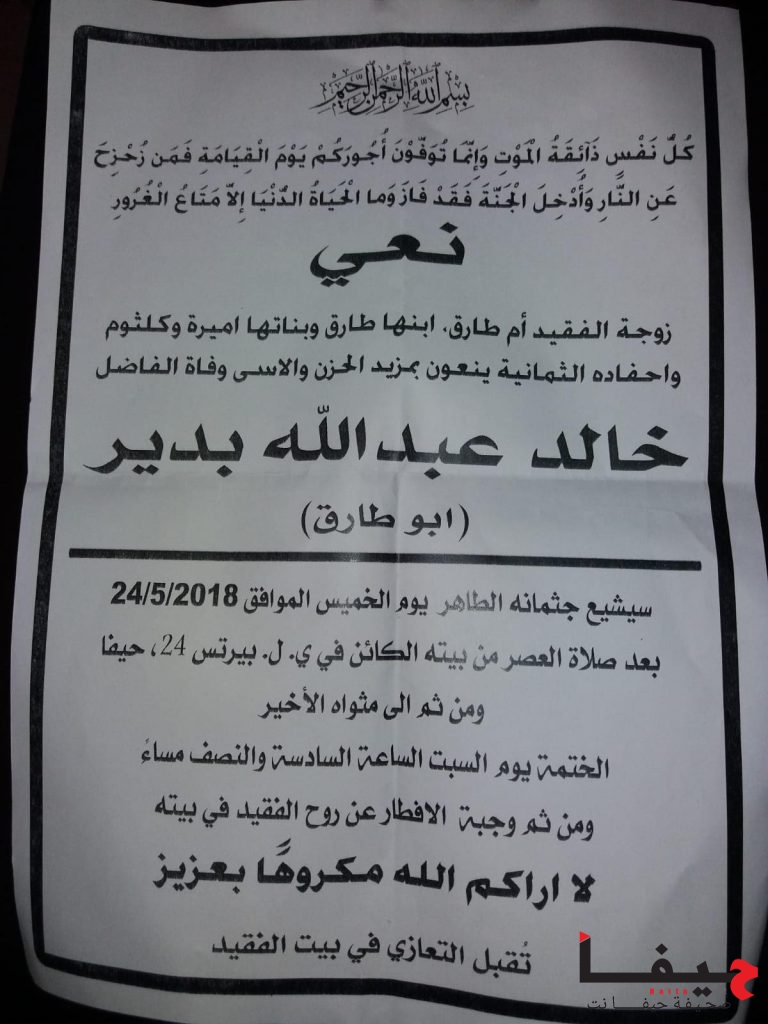 بسم الله الرحمن الرحيم
كُلُّ نَفْسٍ ذَآئِقَةُ الْمَوْتِ وَإِنَّمَا تُوَفَّوْنَ أُجُورَكُمْ يَوْمَ الْقِيَامَةِ فَمَن زُحْزِحَ
عَنِ النَّارِ وَأُدْخِلَ الْجَنَّةَ فَقَدْ فَازَ وَما الْحَيَاةُ الدُّنْيَا إِلاَّ مَتَاعُ الْغُرُورِ
نعي
زوجة الفقيد أم طارق، ابنها طارق وبناتها اميرة وكلثوم
واحفاده الثمانية ينعون بمزيد الحزن والاسى وفاة الفاضل
خالد عبدالله بدير
(ابو طارق)
سيشيع جثمانه الطاهر يوم الخميس الموافق 24/5/2018
بعد صلاة العصر من بيته الكائن في ي. ل. بيرتس 24، حيفا
ومن ثم الى مثواه الأخير
الختمة يوم السبت الساعة السادسة والنصف مساءً
ومن ثم وجبة الافطار عن روح الفقيد في بيته
لا اراكم الله مكروهًا بعزيز
تُقبل التعازي في بيت الفقيد
حيفا
Haifa
صحيفة حيفا نت